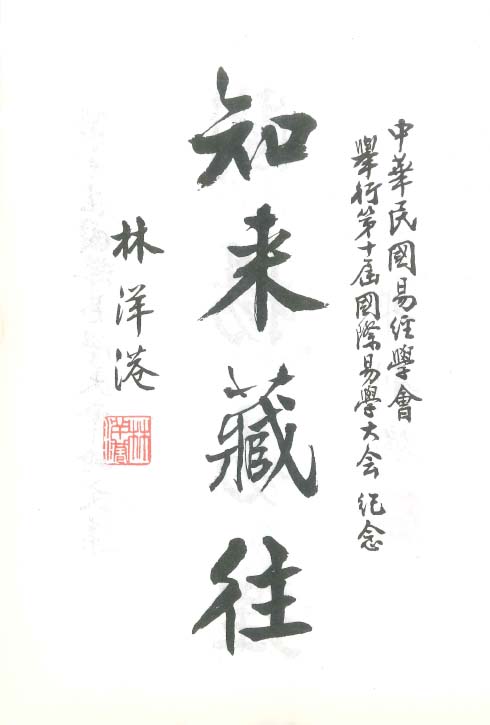 中華民國易經學會
舉行第十屆國際易學大会 紀念
知来藏往
林洋港
林洋港